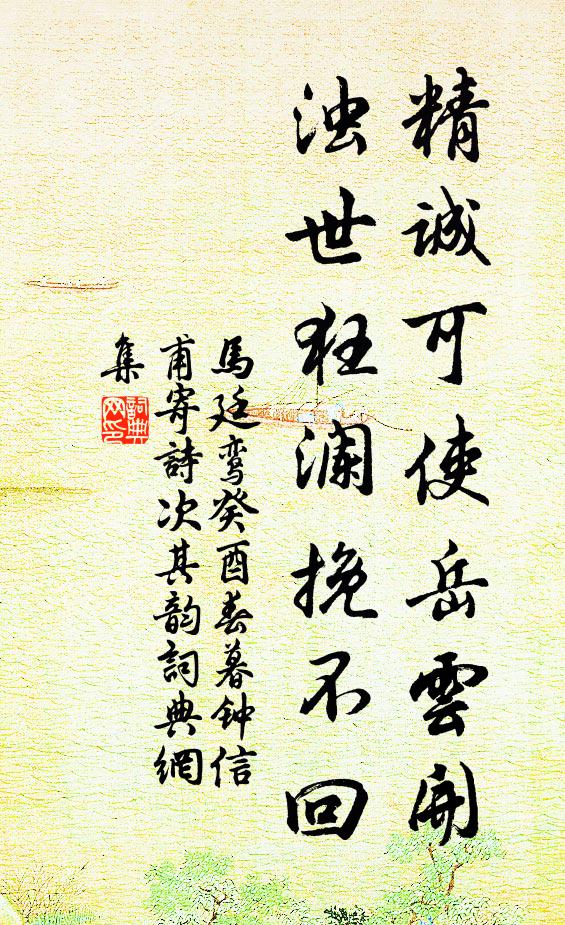 精誠可使岳雲開
浊世狂澜挽不回
馬廷鸾癸酉春暮钟信
甫寄詩次其韵詞典網
集
詞典
网印